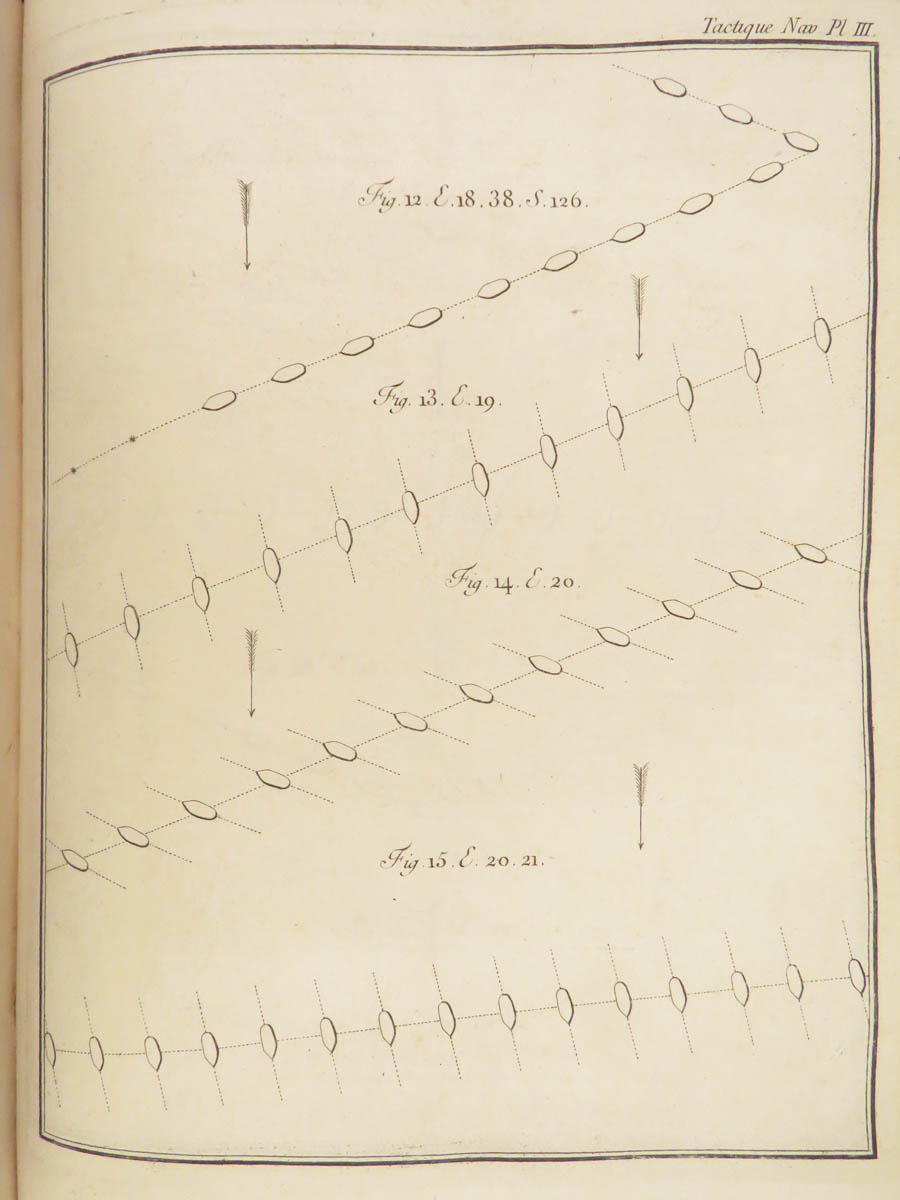 Tactique Nav Pl III.
Fig. 12 E. 18. 38. S. 126.
Fig. 13. E. 19.
Fig. 14. E. 20.
Fig. 15. E. 20. 21.